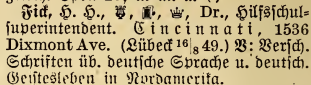 Fick, H. H., Dr., Hilfsschul-
superintendent. Cincinnati, 1536
Dixmont Ave. (Lübeck 16|8 49.) V: Versch.
Schriften üb. deutsche Sprache u. deutsch.
Geistesleben in Nordamerika.